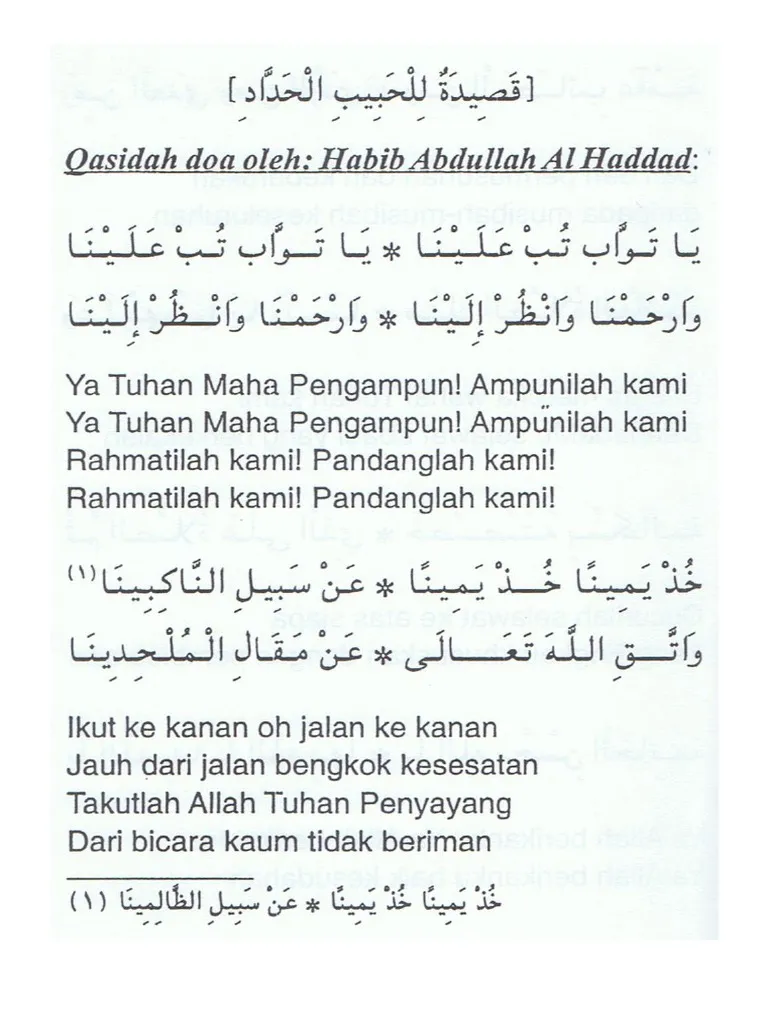 [قَصِيدَةٌ لِلْحَبِيبِ الْحَدَّادِ]
Qasidah doa oleh: Habib Abdullah Al Haddad:
يَا تَوَّاب تُبْ عَلَيْنَا * يَا تَوَّاب تُبْ عَلَيْنَا
وَارْحَمْنَا وَانْظُرْ إِلَيْنَا * وَارْحَمْنَا وَانْظُرْ إِلَيْنَا
Ya Tuhan Maha Pengampun! Ampunilah kami
Ya Tuhan Maha Pengampun! Ampunilah kami
Rahmatilah kami! Pandanglah kami!
Rahmatilah kami! Pandanglah kami!
خُذْ يَمِينًا خُذْ يَمِينًا * عَنْ سَبِيلِ النَّاكِبِينَا (١)
وَاتَّقِ اللَّه تَعَالَى * عَنْ مَقَالِ الْمُلْحِدِينَا
Ikut ke kanan oh jalan ke kanan
Jauh dari jalan bengkok kesesatan
Takutlah Allah Tuhan Penyayang
Dari bicara kaum tidak beriman
(١) خُذْ يَمِينًا خُذْ يَمِينًا * عَنْ سَبِيلِ الظَّالِمِينَا